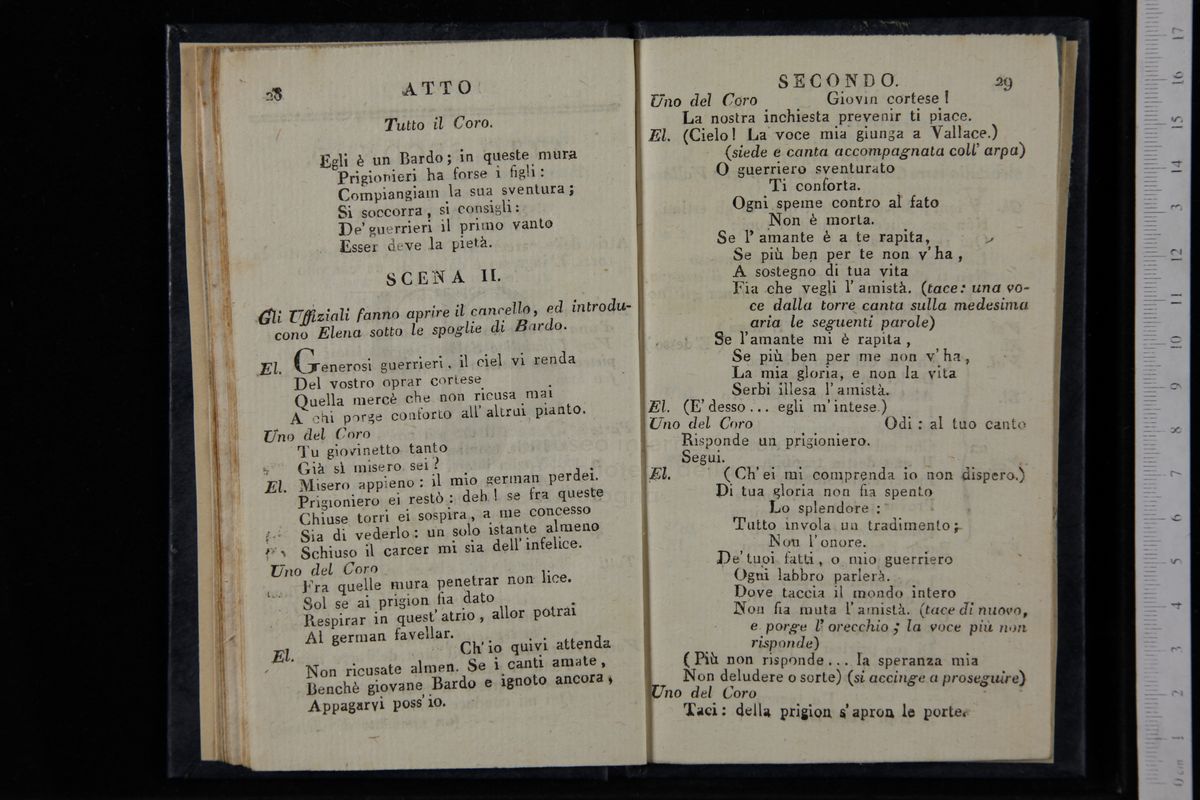 28
ATTO
Tutto il Coro.
Egli è un Bardo; in queste mura
Prigionieri ha forse i figli:
Compiangiam la sua sventura;
Si soccorra, si consigli:
De' guerrieri il primo vanto
Esser deve la pietà.
SCENA II.
Gli Uffiziali fanno aprire il cancello, ed introdu-
cono Elena sotto le spoglie di Bardo.
El. Generosi guerrieri, il ciel vi renda
Del vostro oprar cortese
Quella mercè che non ricusa mai
A chi porge conforto all' altrui pianto.
Uno del Coro
Tu giovinetto tanto
Già sì misero sei?
El. Misero appieno: il mio german perdei.
Prigioniero ei restò: deh! se fra queste
Chiuse torri ei sospira, a me concesso
Sia di vederlo: un solo istante almeno
Schiuso il carcer mi sia dell' infelice.
Uno del Coro
Fra quelle mura penetrar non lice.
Sol se ai prigion fia dato
Respirar in quest' atrio, allor potrai
Al german favellar.
El. Ch' io quivi attenda
Non ricusate almen. Se i canti amate,
Benchè giovane Bardo e ignoto ancora,
Appagarvi poss' io.
SECONDO.
29
Uno del Coro Giovin cortese!
La nostra inchiesta prevenir ti piace.
El. (Cielo! La voce mia giunga a Vallace.)
(siede e canta accompagnata coll' arpa)
O guerriero sventurato
Ti conforta.
Ogni speme contro al fato
Non è morta.
Se l' amante è a te rapita,
Se più ben per te non v' ha,
A sostegno di tua vita
Fia che vegli l' amistà. (tace: una vo-
ce dalla torre canta sulla medesima
aria le seguenti parole)
Se l' amante mi è rapita,
Se più ben per me non v' ha,
La mia gloria, e non la vita
Serbi illesa l' amistà.
El. (E' desso... egli m' intese.)
Uno del Coro Odi: al tuo canto
Risponde un prigioniero.
Segui.
El. (Ch' ei mi comprenda io non dispero.)
Di tua gloria non fia spento
Lo splendore:
Tutto invola un tradimento;
Non l' onore.
De' tuoi fatti, o mio guerriero
Ogni labbro parlerà.
Dove taccia il mondo intero
Non fia muta l' amistà. (tace di nuovo,
e porge l' orecchio; la voce più non
risponde)
(Più non risponde... la speranza mia
Non deludere o sorte) (si accinge a proseguire)
Uno del Coro
Taci: della prigion s' apron le porte.
0 cm 1 2 3 4 5 6 7 8 9 10 11 12 13 14 15 16 17